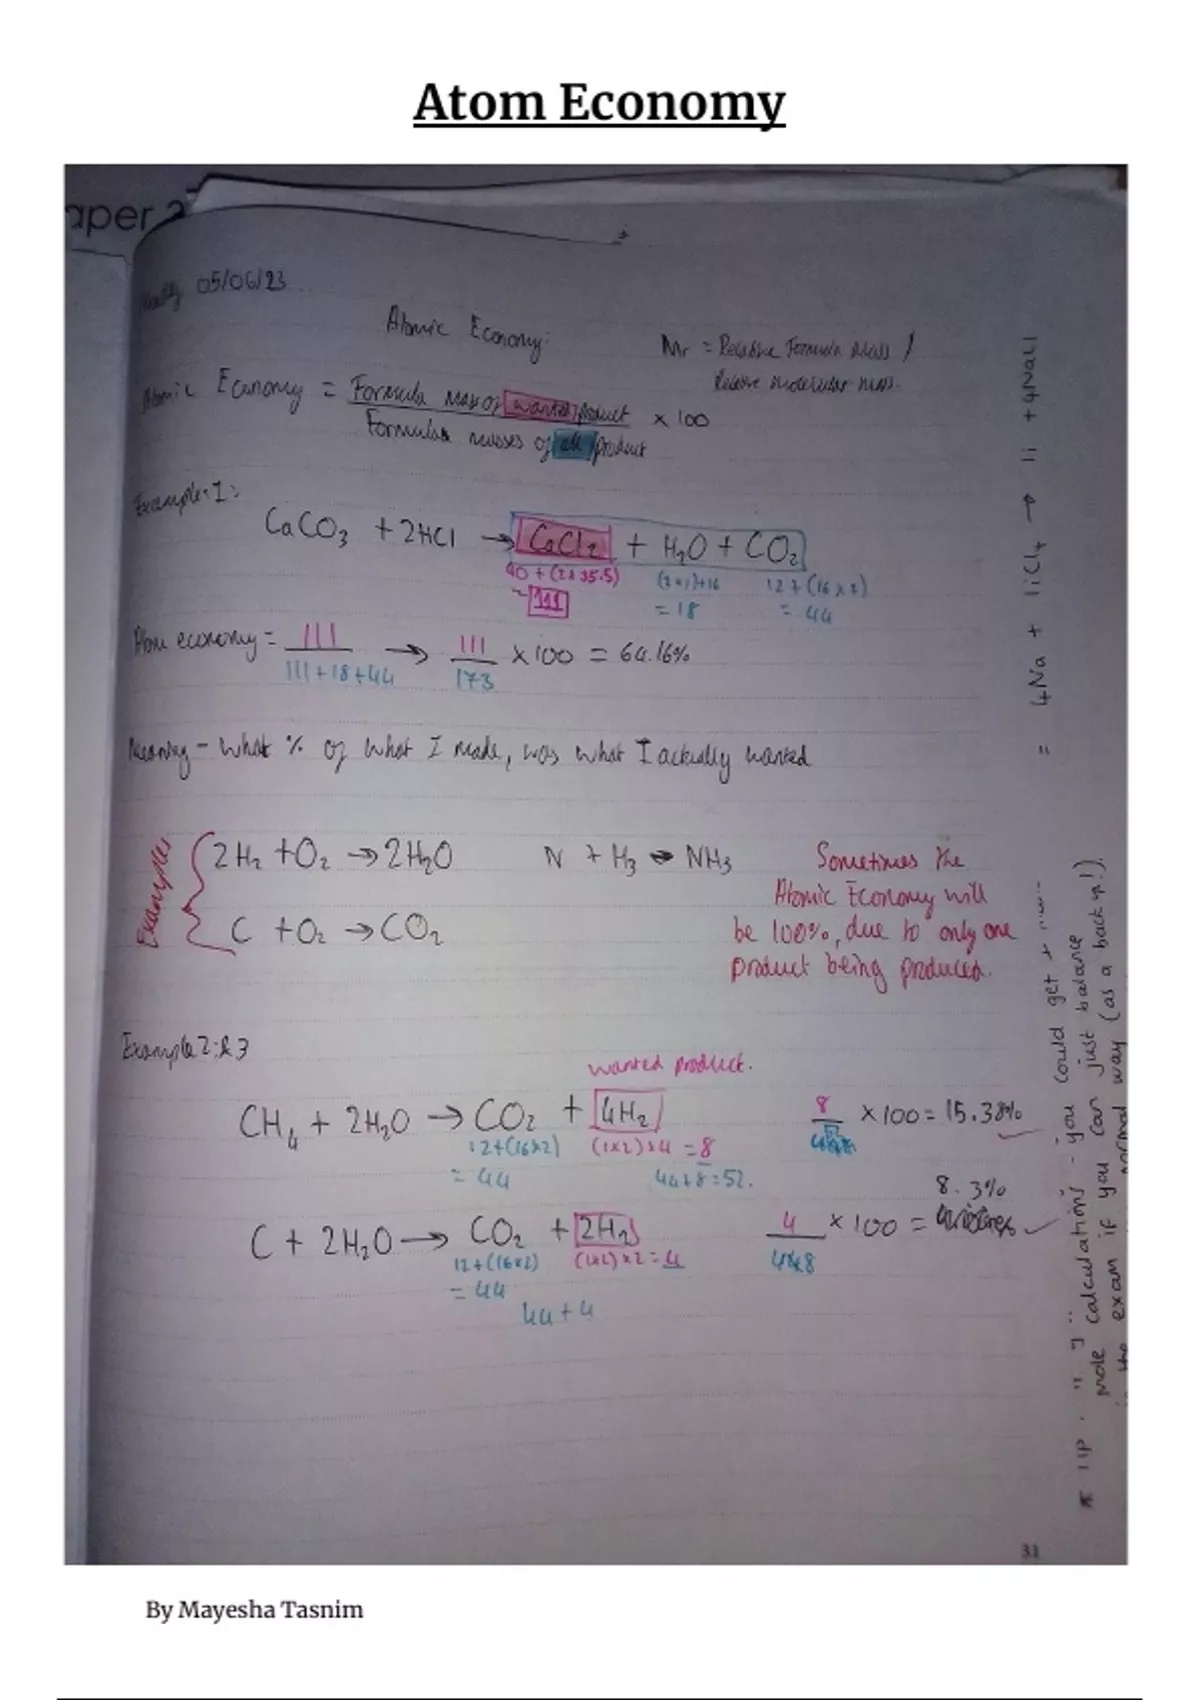 Atom Economy
aper 2
05/06/23
Atomic Economy:
Mr = Relative Formula Mass /
Relative molecular mass.
Atomic Economy = Formula Mass of wanted product x 100
Formula masses of all product
Example 1:
CaCO3 + 2HCl → CaCl2 + H2O + CO2
40 + (2x35.5) (2x1)+16 12+(16x2)
= 111 = 18 = 44
Atom economy = 111 → 111 x 100 = 64.16%
111+18+44 173
Meaning - What % of what I made, was what I actually wanted
Examples
2H2 + O2 → 2H2O N + H3 → NH3
C + O2 → CO2
Sometimes the
Atomic Economy will
be 100%, due to only one
product being produced.
Example 2 & 3
wanted product.
CH4 + 2H2O → CO2 + 4H2 8 x 100 = 15.38%
12+(16x2) (1x2)x4 = 8
= 44 44+8=52.
8.3%
C + 2H2O → CO2 + 2H2 4 x 100 =
12+(16x2) (1x2)x2 = 4
= 44
44+4
= 4Na + TiCl4 → Ti + 4NaCl
you could get
mole calculations - you can just balance
exam if you normal way (as a back up!).
31
By Mayesha Tasnim